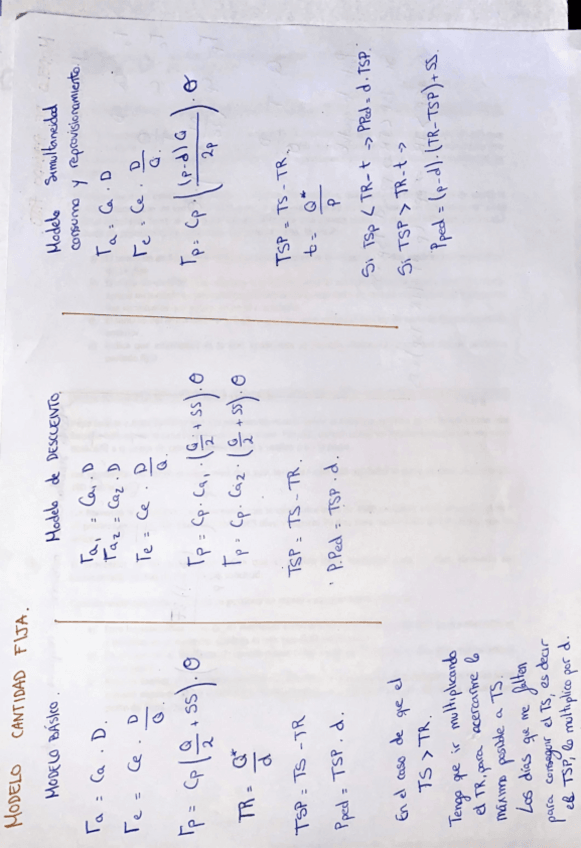 MODELO CANTIDAD FIJA.
MODELO BÁSICO.
Γa = Ca · D.
Γe = Ce · D/Q
Γp = Cp (Q/2 + SS) · θ
TR = Q*/d
TSP = TS - TR
Pped = TSP · d.
En el caso de que el
TS > TR.
Tengo que ir multiplicando
el TR, para acercarme lo
máximo posible a TS.
Los días que me faltan
para conseguir el TS, es decir
el TSP, lo multiplico por d.
Modelo de DESCUENTO.
Γa1 = Ca1 · D
Γa2 = Ca2 · D
Γe = Ce · D/Q.
Γp = Cp · Ca1 · (Q/2 + SS) · θ
Γp = Cp · Ca2 · (Q/2 + SS) · θ
TSP = TS - TR.
P.Ped = TSP · d.
Modelo Simultaneidad
consumo y reprovisionamiento.
Γa = Ca · D
Γe = Ce · D/Q.
Γp = Cp · ((p-d)Q/2p) · θ
TSP = TS - TR.
t = Q*/P
Si TSP < TR-t -> PPed = d · TSP.
Si TSP > TR-t ->
Pped = (p-d) · (TR-TSP) + SS.